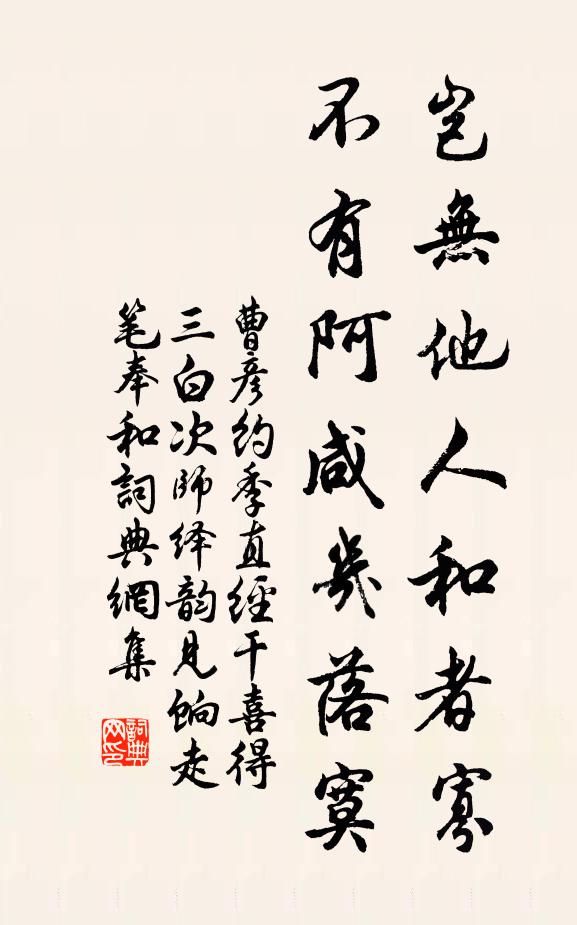 岂無他人和者寡
不有阿咸幾落寞
曹彦約季直經干喜得
三白次師绎韵見餉走
笔奉和詞典網集
詞典
网印